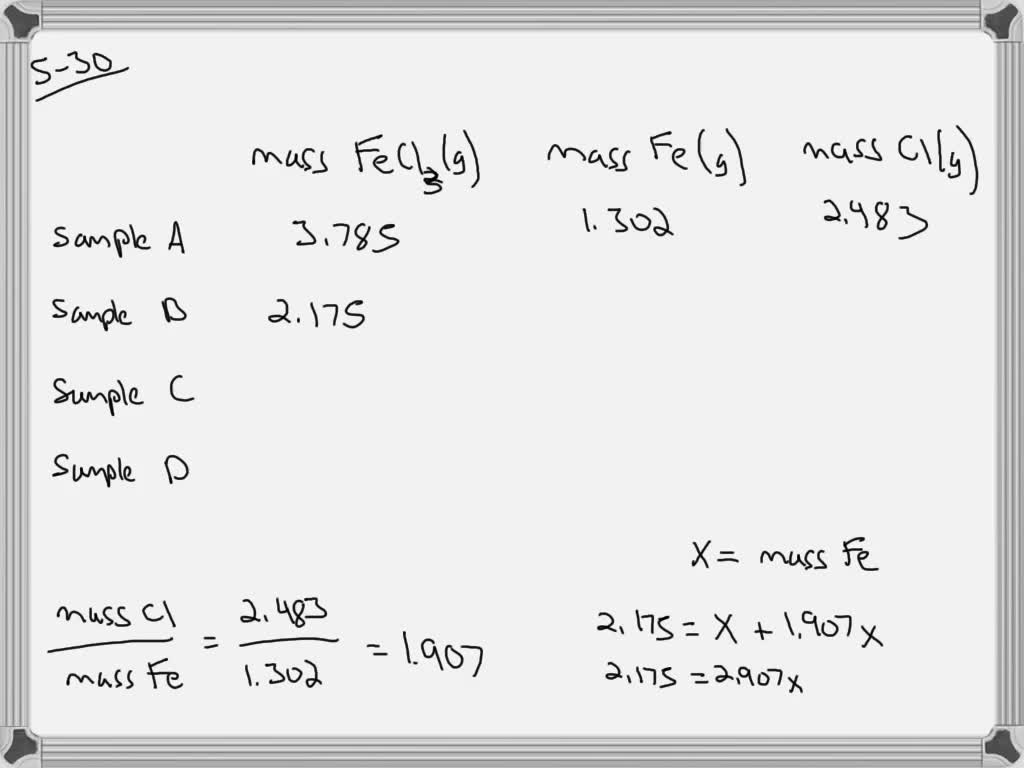 5-30
mass FeCl3(g) mass Fe(g) mass Cl(g)
Sample A 3.785 1.302 2.483
Sample B 2.175
Sample C
Sample D
X = mass Fe
mass Cl / mass Fe = 2.483 / 1.302 = 1.907
2.175 = X + 1.907x
2.175 = 2.907x